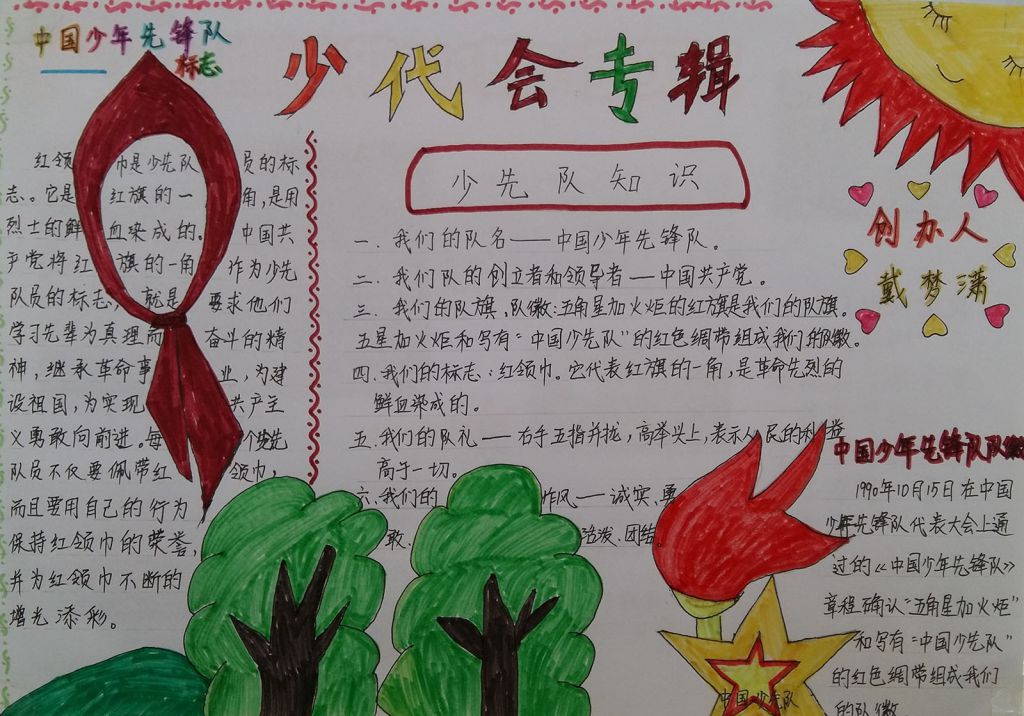 中国少年先锋队
标志
少代会专辑
红领巾是少先队员的标
志。它是红旗的一角,是用
烈士的鲜血染成的。中国共
产党将红旗的一角作为少先
队员的标志,就是要求他们
学习先辈为真理而奋斗的精
神,继承革命事业,为建
设祖国,为实现共产主
义勇敢向前进。每个少先
队员不仅要佩带红领巾,
而且要用自己的行为
保持红领巾的荣誉,
并为红领巾不断的
增光添彩。
少先队知识
一、我们的队名——中国少年先锋队。
二、我们队的创立者和领导者—中国共产党。
三、我们的队旗、队徽:五角星加火炬的红旗是我们的队旗。
五星加火炬和写有“中国少先队”的红色绸带组成我们的队徽。
四、我们的标志:红领巾。它代表红旗的一角,是革命先烈的
鲜血染成的。
五、我们的队礼——右手五指并拢,高举头上,表示人民的利益
高于一切。
六、我们的作风——诚实、勇
敢、活泼、团结。
创办人
戴梦潇
中国少年先锋队队徽
1990年10月15日在中国
少年先锋队代表大会上通
过的《中国少年先锋队》
章程确认“五角星加火炬”
和写有“中国少先队”
的红色绸带组成我们
的队徽
中国少先队